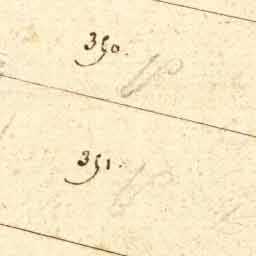 350.
351.